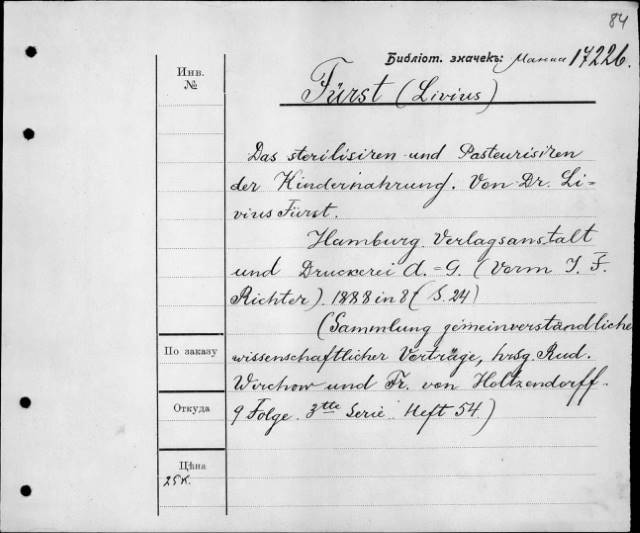 84
Библіот. значекъ: Манна 17226.
Инв.
№
Fürst (Livius)
Das sterilisiren und Pasteurisiren
der Kindernahrung. Von Dr. Li=
vius Fürst.
Hamburg. Verlagsanstalt
und Druckerei A.=G. (Vorm J. F.
Richter). 1888 in 8 (S. 24)
(Sammlung gemeinverständliche
По заказу
wissenschaftlicher Vorträge, hrsg. Rud.
Wirchow und Fr. von Holtzendorff.
Откуда
9 Folge. 3tte Serie. Heft 54.)
Цѣна
25 к.